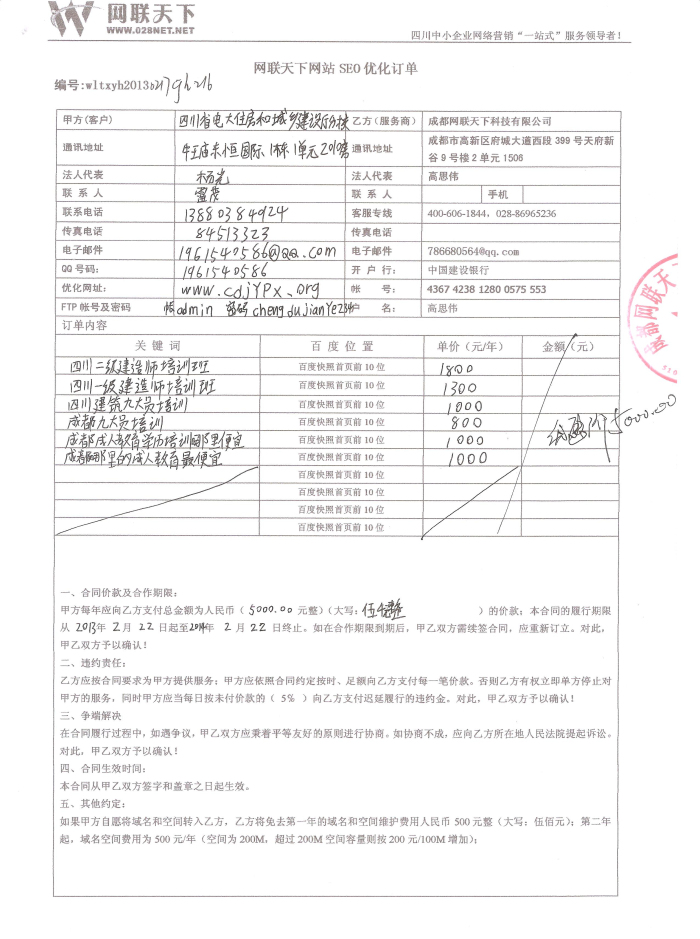 网联天下
WWW.028NET.COM
四川中小企业网络营销“一站式”服务领导者！
网联天下网站 SEO 优化订单
编号:wltxyh2013
甲方(客户) 四川省电大住房和城乡建设厅分校 乙方（服务商） 成都网联天下科技有限公司
通讯地址 牛王庙东恒国际1栋1单元 通讯地址 成都市高新区府城大道西段 399 号天府新谷 9 号楼 2 单元 1506
法人代表 杨光 法人代表 高思伟
联 系 人 雷茂 联 系 人 手机
联系电话 13880384924 客服专线 400-606-1844，028-86965236
传真电话 84513323 传真电话
电子邮件 1961540586@qq.com 电子邮件 786680564@qq.com
QQ 号码: 1961540586 开 户 行: 中国建设银行
优化网址: www.cdjypx.org 帐 号: 4367 4238 1280 0575 553
FTP 帐号及密码 帐admin 密码 名: 高思伟
订单内容
关 键 词 百 度 位 置 单价（元/年） 金额（元）
四川二级建造师培训班 百度快照首页前 10 位 1800
四川一级建造师培训班 百度快照首页前 10 位 1300
四川建筑九大员培训 百度快照首页前 10 位 1000
成都九大员培训 百度快照首页前 10 位 800
成都成人教育学历培训哪里便宜 百度快照首页前 10 位 1000
成都哪里的成人教育最便宜 百度快照首页前 10 位 1000
5000.00
百度快照首页前 10 位
百度快照首页前 10 位
百度快照首页前 10 位
百度快照首页前 10 位
一、合同价款及合作期限：
甲方每年应向乙方支付总金额为人民币（ 5000.00 元整）（大写：伍仟整 ）的价款；本合同的履行期限
从 2013年 2 月 22 日起至2014年 2 月 22 日终止。如在合作期限到期后，甲乙双方需续签合同，应重新订立。对此，
甲乙双方予以确认！
二、违约责任：
乙方应按合同要求为甲方提供服务；甲方应依照合同约定按时、足额向乙方支付每一笔价款。否则乙方有权立即单方停止对
甲方的服务，同时甲方应当每日按未付价款的（ 5% ）向乙方支付迟延履行的违约金。对此，甲乙双方予以确认！
三、争端解决
在合同履行过程中，如遇争议，甲乙双方应秉着平等友好的原则进行协商。如协商不成，应向乙方所在地人民法院提起诉讼。
对此，甲乙双方予以确认！
四、合同生效时间：
本合同从甲乙双方签字和盖章之日起生效。
五、其他约定：
如果甲方自愿将域名和空间转入乙方，乙方将免去第一年的域名和空间维护费用人民币 500 元整（大写：伍佰元）；第二年
起，域名空间费用为 500 元/年（空间为 200M，超过 200M 空间容量则按 200 元/100M 增加）；
成都网联天下